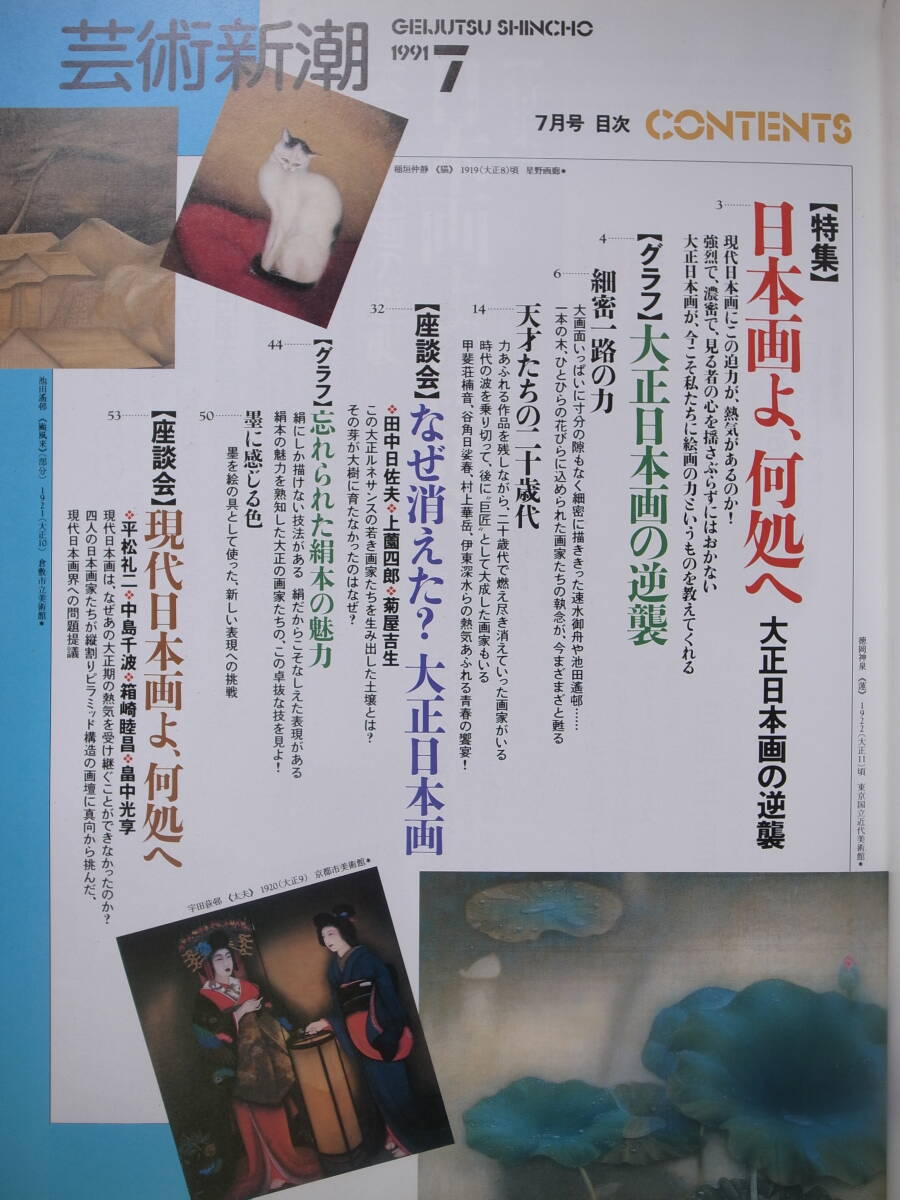 芸術新潮
GEIJUTSU SHINCHO
1991 7
7月号 目次 CONTENTS
稲垣仲静 《猫》 1919(大正8)頃 星野画廊●
【特集】
3……日本画よ、何処へ 大正日本画の逆襲
現代日本画にこの迫力が、熱気があるのか!
強烈で、濃密で、見る者の心を揺さぶらずにはおかない
大正日本画が、今こそ私たちに絵画の力というものを教えてくれる
4……【グラフ】大正日本画の逆襲
6……細密一路の力
大画面いっぱいに寸分の隙もなく細密に描ききった速水御舟や池田遙邨……
一本の木、ひとひらの花びらに込められた画家たちの執念が、今まざまざと甦る
14……天才たちの二十歳代
力あふれる作品を残しながら、二十歳代で燃え尽き消えていった画家がいる
時代の波を乗り切って、後に「巨匠」として大成した画家もいる
甲斐荘楠音、谷角日娑春、村上華岳、伊東深水らの熱気あふれる青春の饗宴!
32……【座談会】なぜ消えた? 大正日本画
❖田中日佐夫❖上薗四郎❖菊屋吉生
この大正ルネサンスの若き画家たちを生み出した土壌とは?
その芽が大樹に育たなかったのはなぜ?
44……【グラフ】忘れられた絹本の魅力
絹にしか描けない技法がある 絹だからこそなしえた表現がある
絹本の魅力を熟知した大正の画家たちの、この卓抜な技を見よ!
50……墨に感じる色
墨を絵の具として使った、新しい表現への挑戦
53……【座談会】現代日本画よ、何処へ
❖平松礼二❖中島千波❖箱崎睦昌❖畠中光享
現代日本画は、なぜあの大正期の熱気を受け継ぐことができなかったのか?
四人の日本画家たちが縦割りピラミッド構造の画壇に真向から挑んだ、
現代日本画界への問題提議
池田遙邨 《颱風来》(部分) 1921(大正10) 倉敷市立美術館●
徳岡神泉 《蓮》 1922(大正11)頃 東京国立近代美術館●
宇田荻邨 《太夫》 1920(大正9) 京都市美術館●